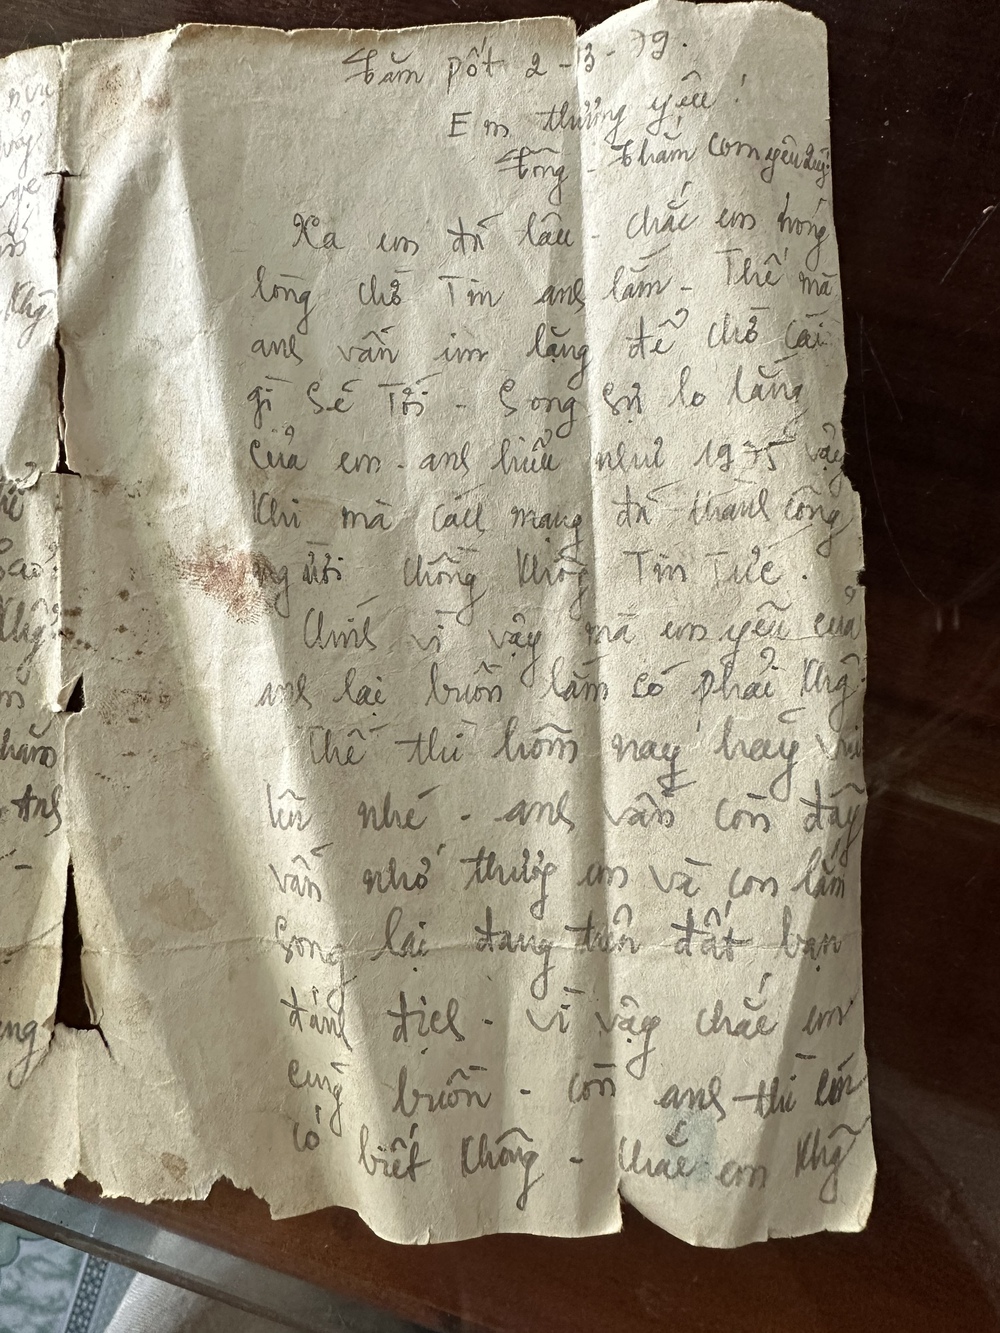 Căm pốt 2-3-79.
Em thương yêu!
Công - Thắm con yêu quý
Xa em đã lâu - chắc em nóng
lòng chờ Tin anh lắm - Thế mà
anh vẫn im lặng để chờ cái
gì sẽ Tới - Song sự lo lắng
của em - anh hiểu như 1975 vậy
Khi mà cách mạng đã thành công
người chồng không Tin Tức.
Chính vì vậy mà em yêu của
anh lại buồn lắm có phải Khg
Thế thì hôm nay hãy vui
lên nhé - anh vẫn còn đây
vẫn nhớ thương em và con lắm
Song lại đang trên đất bạn
đánh địch - vì vậy chắc em
cũng buồn - còn anh thì em
có biết không - chắc em Khg